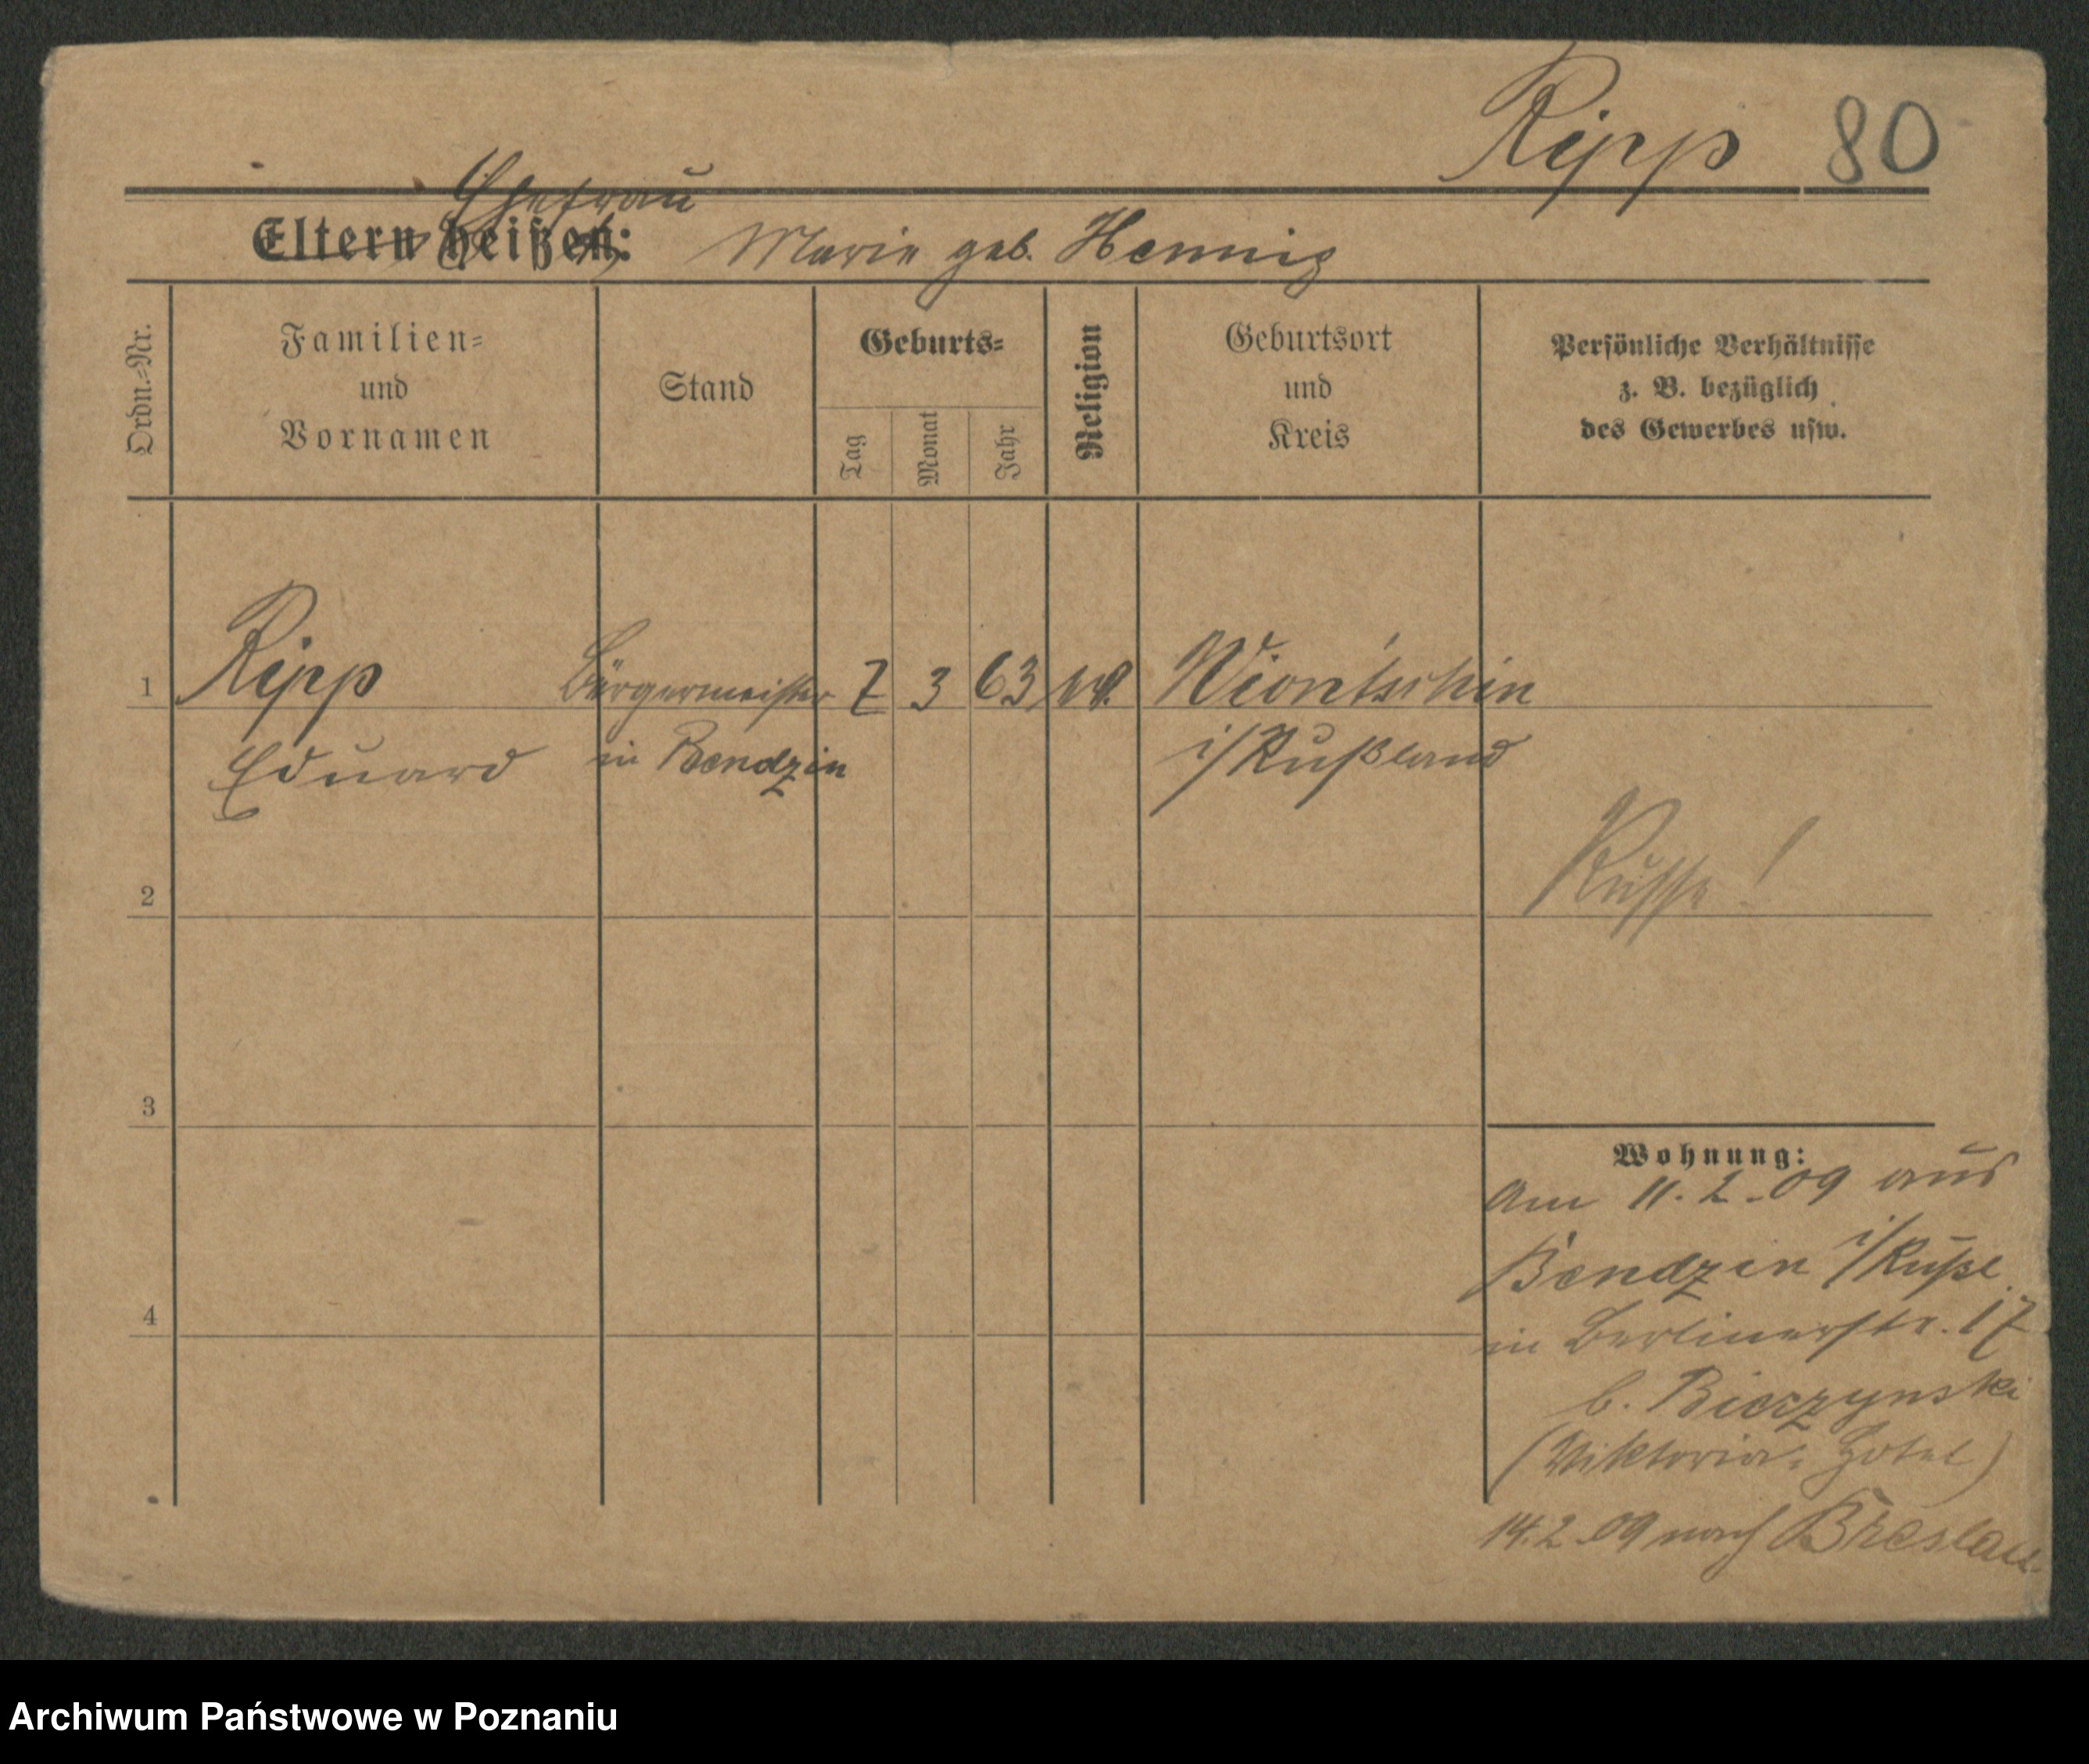 Ripp 80
Ehefrau
Eltern heißen: Marie geb. Hennig
Ordn.=Nr.
Familien=
und
Vornamen
Stand
Geburts=
Tag
Monat
Jahr
Religion
Geburtsort
und
Kreis
Persönliche Verhältnisse
z. B. bezüglich
des Gewerbes usw.
1 Ripp Bürgermeister 7 3 63 Wiontschin
Eduard in Bendzin i/Rußland
Russe!
2
3
4
Wohnung:
Am 11.2.09 aus
Bendzin i/Rußl.
in Berlinerstr. 17
b. Bieczynski
(Viktoria=Hotel)
14.2.09 nach Breslau
Archiwum Państwowe w Poznaniu